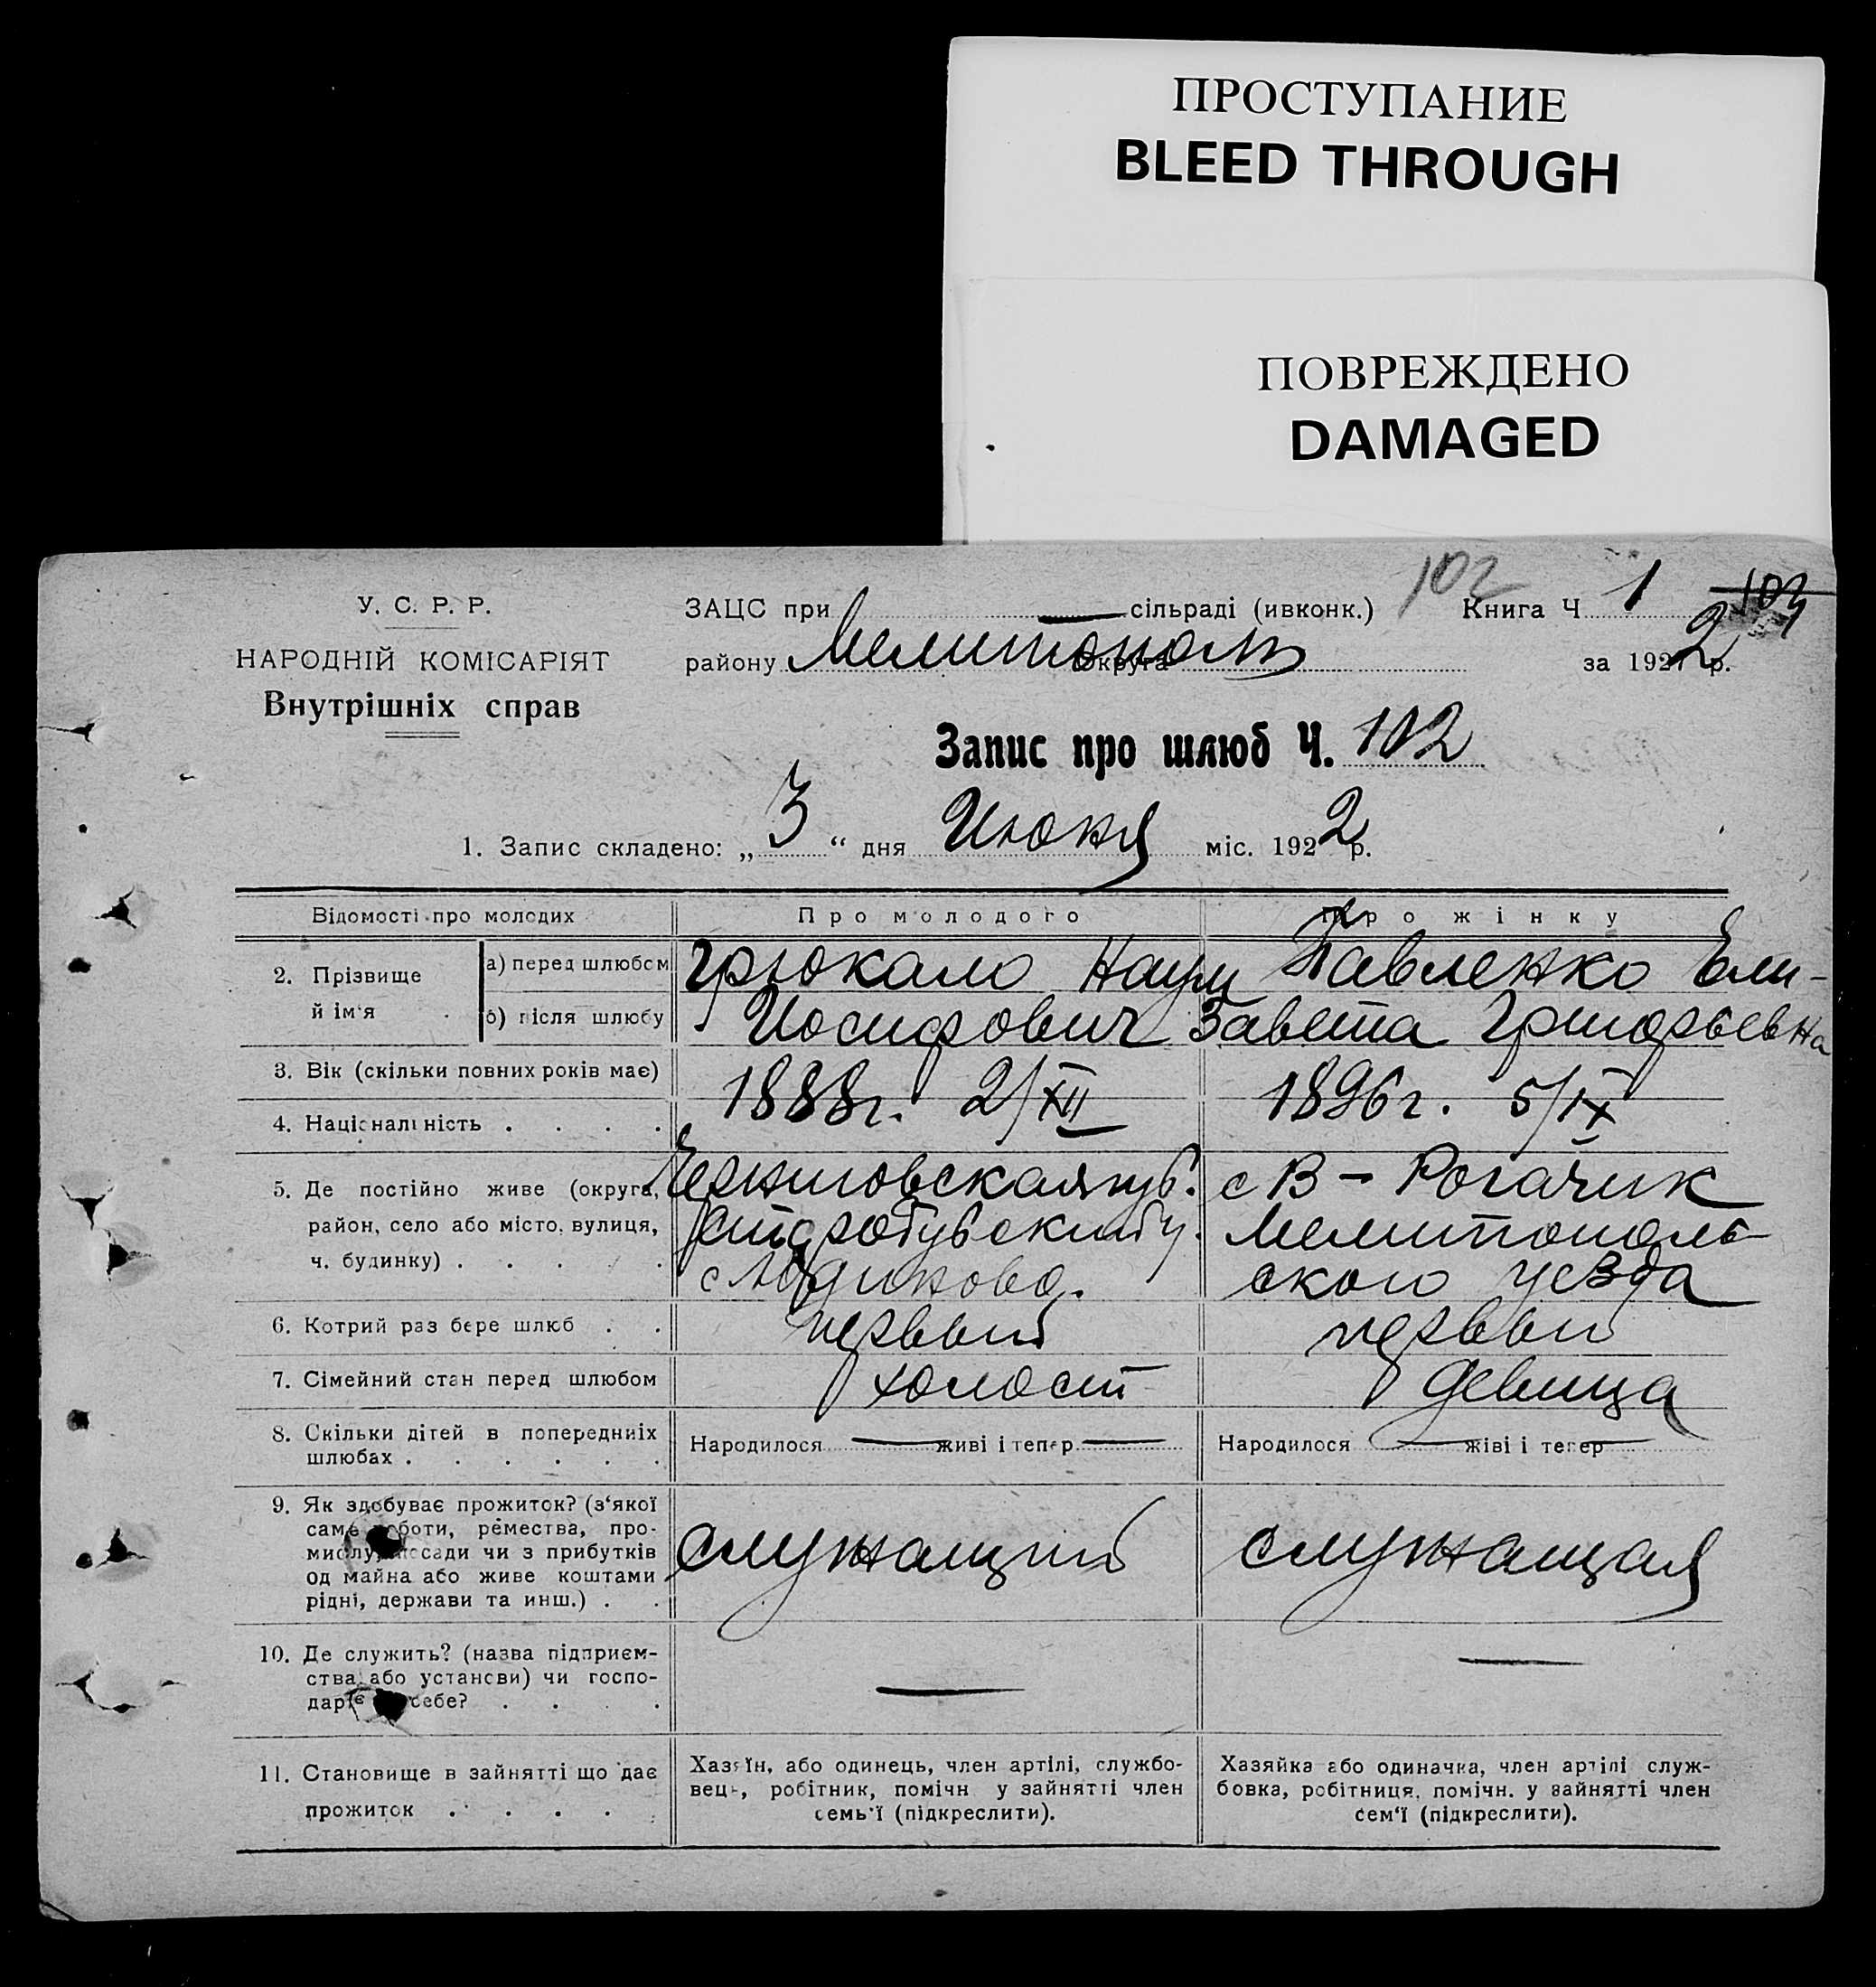 ПРОСТУПАНИЕ
BLEED THROUGH
ПОВРЕЖДЕНО
DAMAGED
У. С. Р. Р.
НАРОДНІЙ КОМІСАРІЯТ
Внутрішніх справ
102
ЗАЦС при — сільраді (ивконк.) Книга Ч 1
району Мелитополь Округа за 1922 р.
Запис про шлюб Ч. 102
1. Запис складено: „ 3 “ дня Июня міс. 1922 р.
Відомості про молодих Про молодого Про жінку
2. Прізвище й ім'я а) перед шлюбом Грюкало Наум Павленко Ели-
б) після шлюбу Иосифович завета Григорьевна
3. Вік (скільки повних років має) 1888г. 2/XII 1896г. 5/IX
4. Національність . . . .
5. Де постійно живе (округа, Черниговская губ. с В - Рогачик
район, село або місто, вулиця, Мелитополь-
ч. будинку) . . . . . ского уезда
6. Котрий раз бере шлюб . . первый первый
7. Сімейний стан перед шлюбом холост девица
8. Скільки дітей в попередніх Народилося — живі і тепер — Народилося — живі і тепер
шлюбах . . . . . .
9. Як здобуває прожиток? (з‘якої
саме роботи, ремества, про-
мислу, посади чи з прибутків служащий служащая
од майна або живе коштами
рідні, держави та инш.) . .
10. Де служить? (назва підприєм-
ства або установи) чи госпо- — —
даріє себе? . . . .
11. Становище в зайнятті що дає Хазяїн, або одинець, член артілі, службо- Хазяйка або одиначка, член артілі служ-
прожиток . . . . . вець, робітник, помічн у зайнятті член бовка, робітниця, помічн. у зайнятті член
семь'ї (підкреслити). сем‘ї (підкреслити).